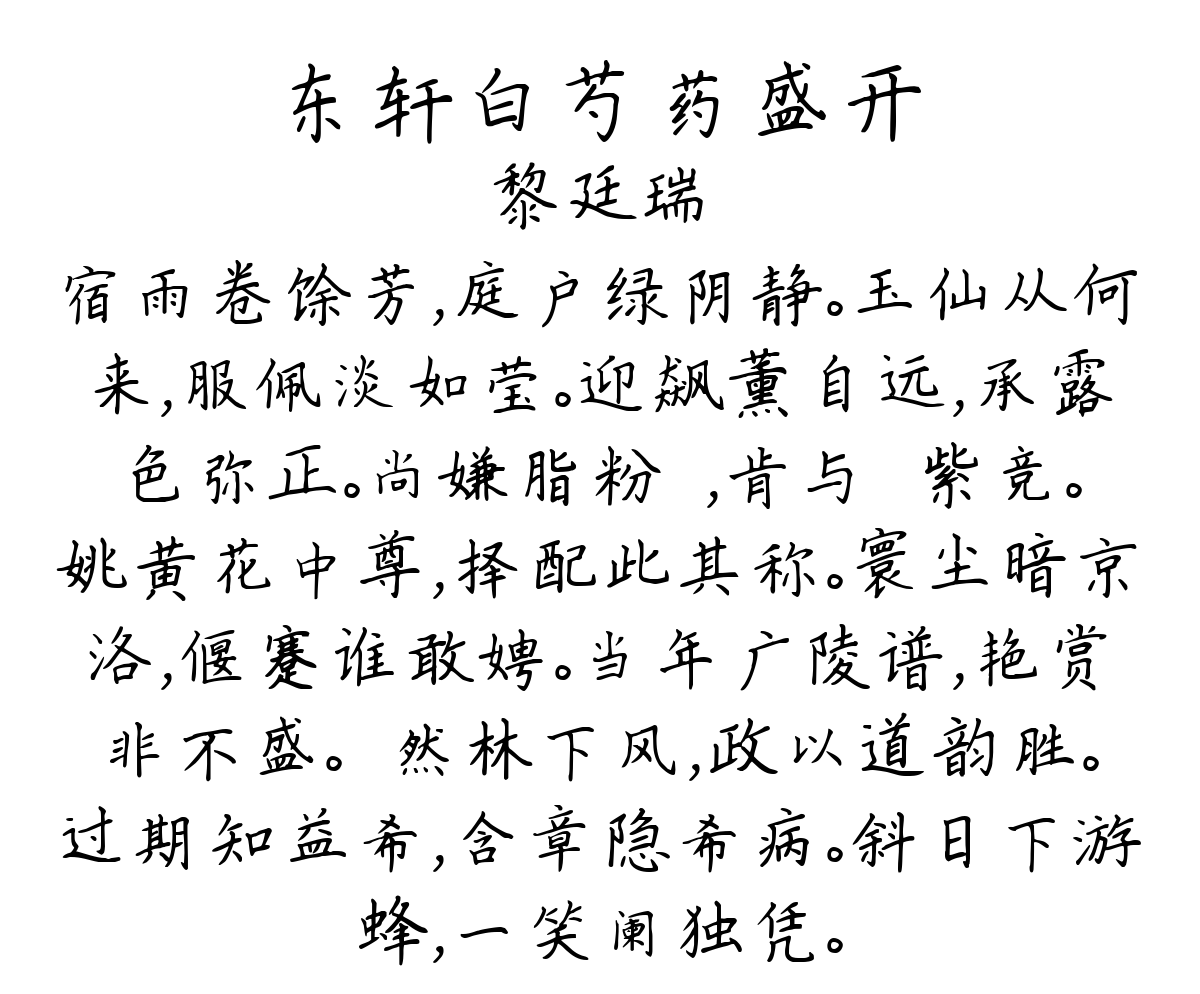 东轩白芍药盛开
黎廷瑞
宿雨卷馀芳,庭户绿阴静。玉仙从何
来,服佩淡如莹。迎飙薰自远,承露
色弥正。尚嫌脂粉 ,肯与 紫竞。
姚黄花中尊,择配此其称。寰尘暗京
洛,偃蹇谁敢娉。当年广陵谱,艳赏
非不盛。 然林下风,政以道韵胜。
过期知益希,含章隐希病。斜日下游
蜂,一笑阑独凭。